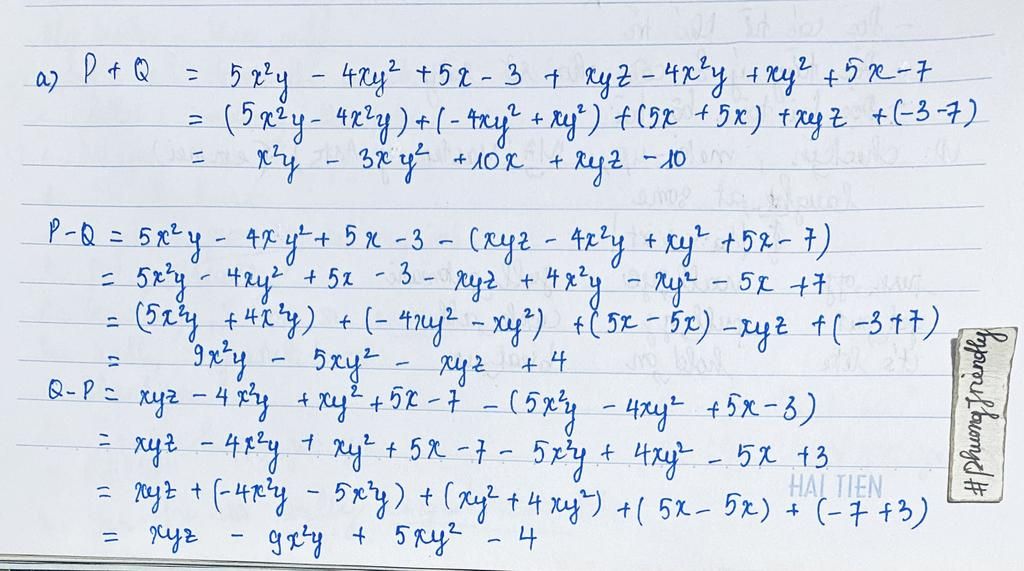 a) P + Q = 5x²y - 4xy² + 5x - 3 + xyz - 4x²y + xy² + 5x - 7
= (5x²y - 4x²y) + (- 4xy² + xy²) + (5x + 5x) + xyz + (-3 -7)
= x²y - 3xy² + 10x + xyz - 10
P - Q = 5x²y - 4xy² + 5x - 3 - (xyz - 4x²y + xy² + 5x - 7)
= 5x²y - 4xy² + 5x - 3 - xyz + 4x²y - xy² - 5x + 7
= (5x²y + 4x²y) + (- 4xy² - xy²) + (5x - 5x) - xyz + (-3 + 7)
= 9x²y - 5xy² - xyz + 4
Q - P = xyz - 4x²y + xy² + 5x - 7 - (5x²y - 4xy² + 5x - 3)
= xyz - 4x²y + xy² + 5x - 7 - 5x²y + 4xy² - 5x + 3
HẢI TIẾN
= xyz + (-4x²y - 5x²y) + (xy² + 4xy²) + (5x - 5x) + (-7 + 3)
= xyz - 9x²y + 5xy² - 4
#phungfriendly